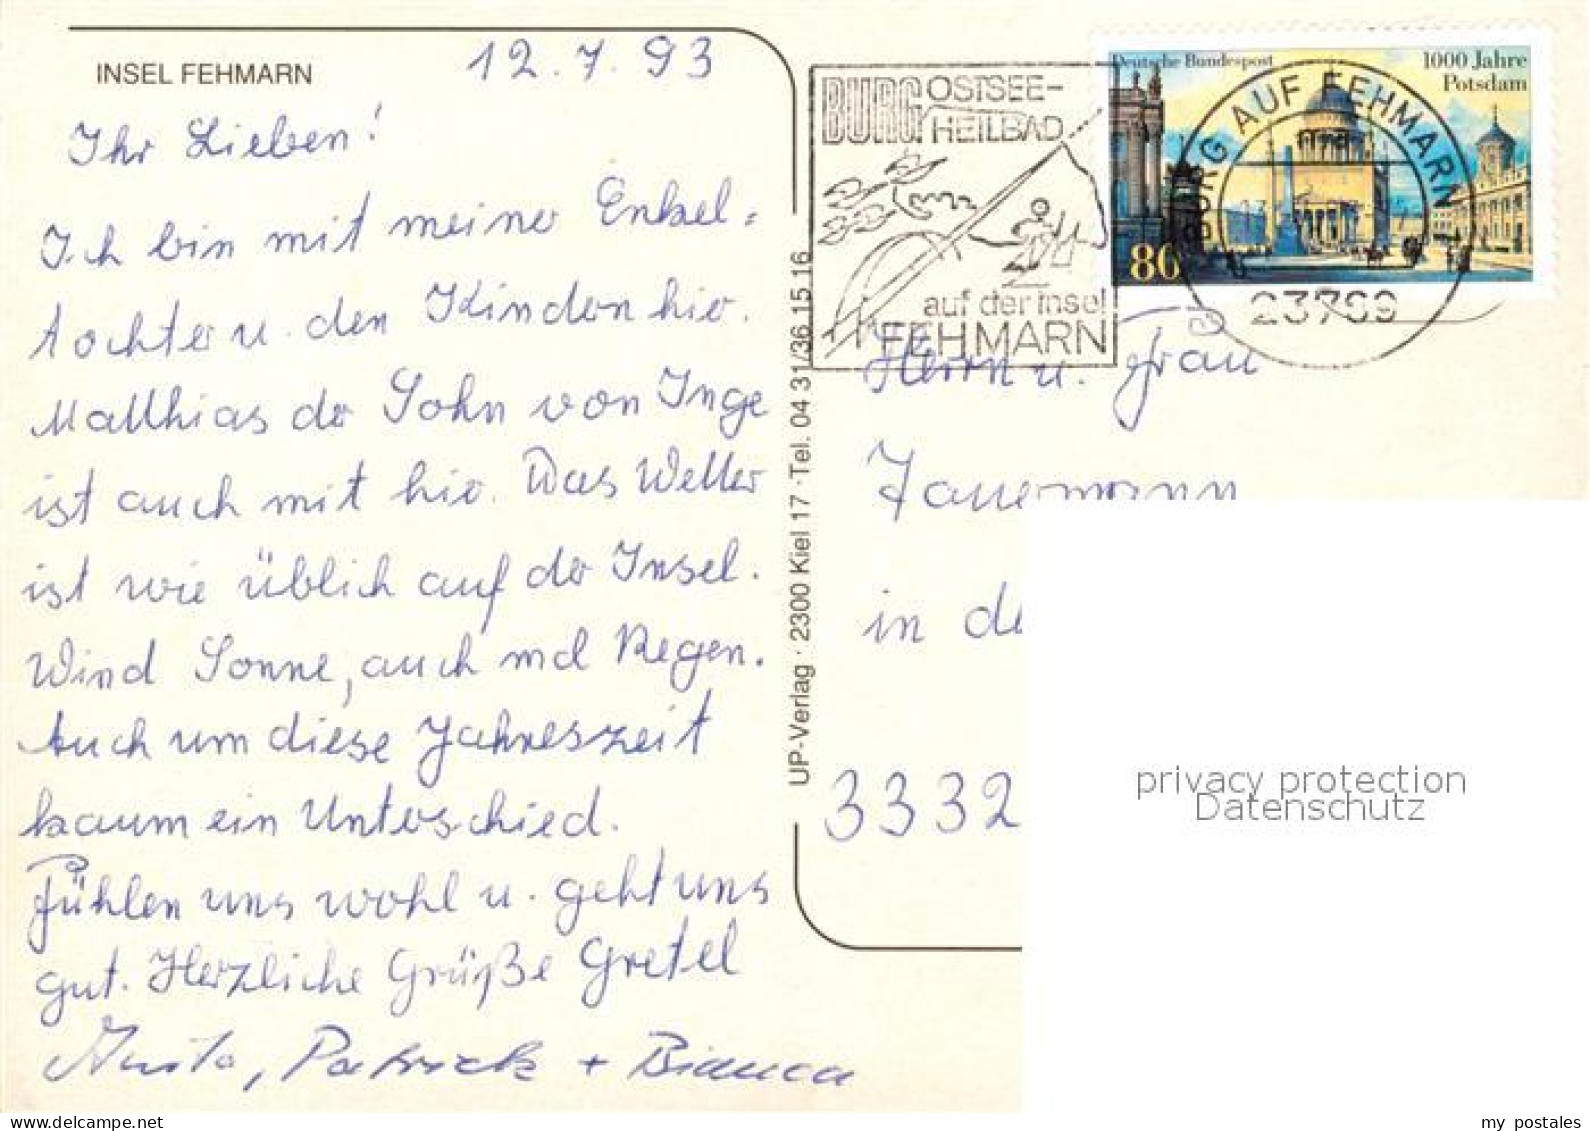 INSEL FEHMARN
12.7.93
Ihr Lieben!
Ich bin mit meiner Enkel=
tochter u. den Kindern hier.
Matthias der Sohn von Inge
ist auch mit hier. Das Wetter
ist wie üblich auf der Insel.
Wind Sonne, auch mal Regen.
Auch um diese Jahreszeit
kaum ein Unterschied.
Fühlen uns wohl u. geht uns
gut. Herzliche Grüße Gretel
Anita, Patrick + Bianca
UP-Verlag · 2300 Kiel 17 · Tel. 04 31/36 15 16
BURG OSTSEE-
HEILBAD
auf der Insel
FEHMARN
Deutsche Bundespost
1000 Jahre
Potsdam
80
BURG AUF FEHMARN 1
23769
Herrn u. Frau
in de
3332
privacy protection
Datenschutz
my postales